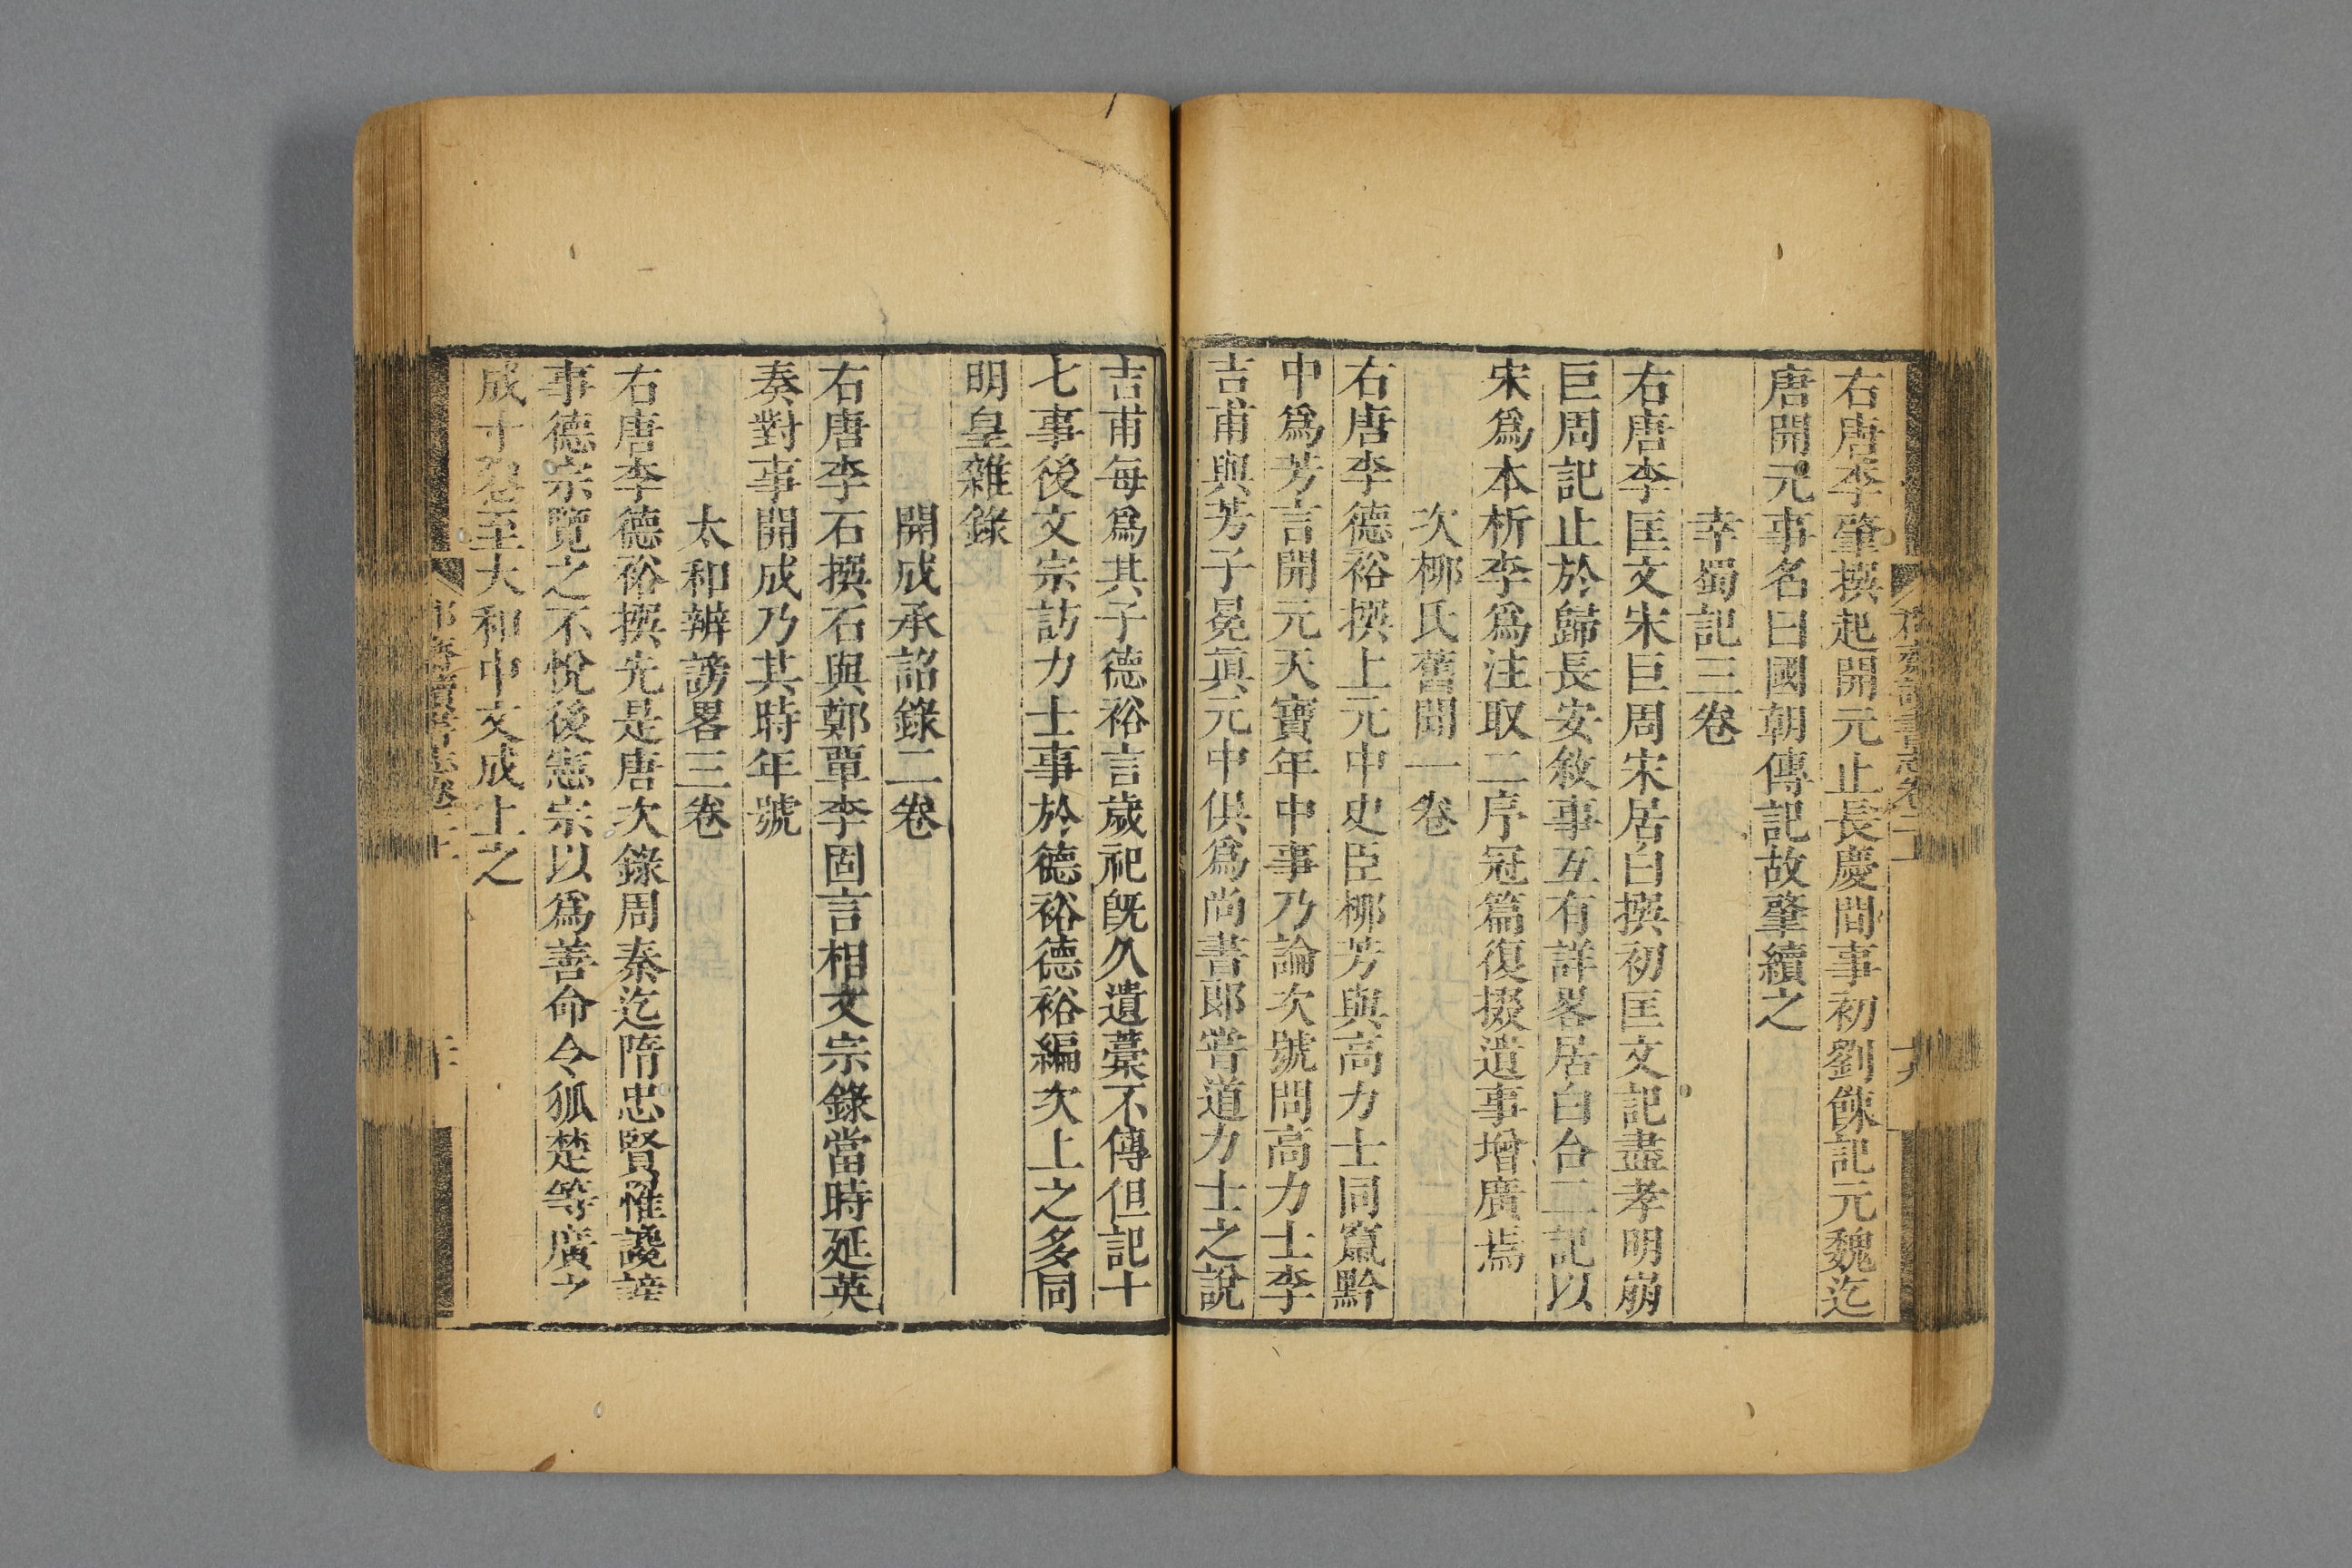 右唐李肇撰起開元止長慶間事初劉餗記元魏迄
唐開元事名曰國朝傳記故肇續之
幸蜀記三卷
右唐李匡文宋巨周宋居白撰初匡文記盡孝明崩
巨周記止於歸長安敘事互有詳畧居白合二記以
宋爲本析李爲注取二序冠篇復掇遺事增廣焉
次柳氏舊聞一卷
右唐李德裕撰上元中史臣柳芳與高力士同竄黔
中爲芳言開元天寶年中事乃論次號問高力士李
吉甫與芳子冕貞元中俱爲尚書郎嘗道力士之說
吉甫每爲其子德裕言歲祀旣久遺藁不傳但記十
七事後文宗訪力士事於德裕德裕編次上之多同
明皇雜錄
開成承詔錄二卷
右唐李石撰石與鄭覃李固言相文宗錄當時延英
奏對事開成乃其時年號
太和辨謗畧三卷
右唐李德裕撰先是唐次錄周秦迄隋忠賢罹讒謗
事德宗覽之不悅後憲宗以爲善命令狐楚等廣之
成十卷至大和中文成上之